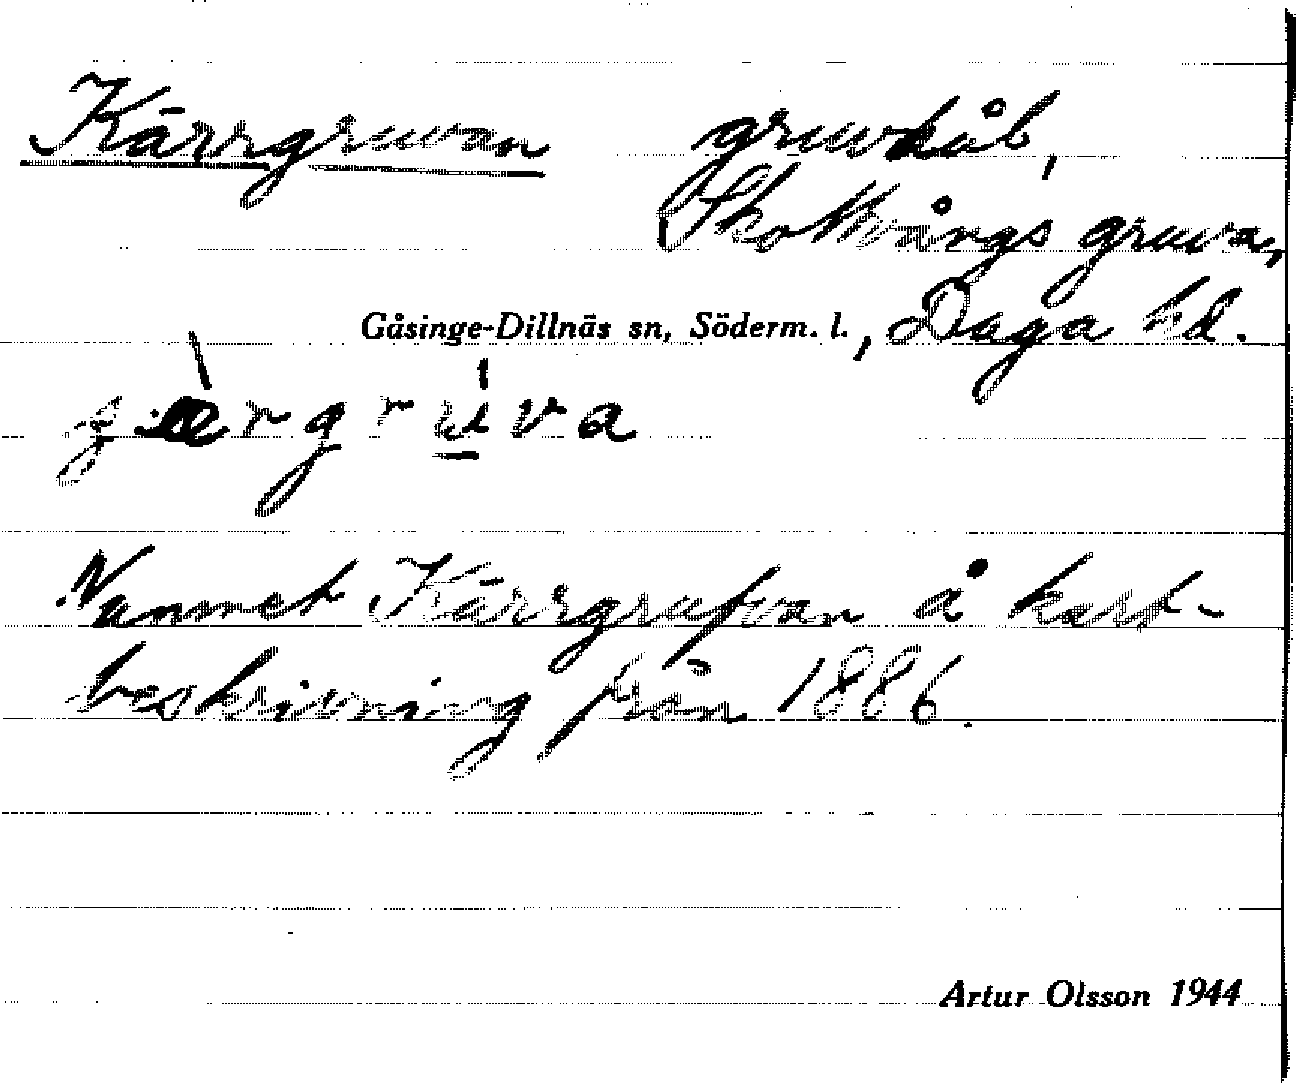 Kärrgruvan gruvhål,
Skottvångs gruva,
Gåsinge-Dillnäs sn, Söderm. l., Daga hd.
Namnet Kärrgrufvan å kart-
beskrivning från 1886.
Artur Olsson 1944